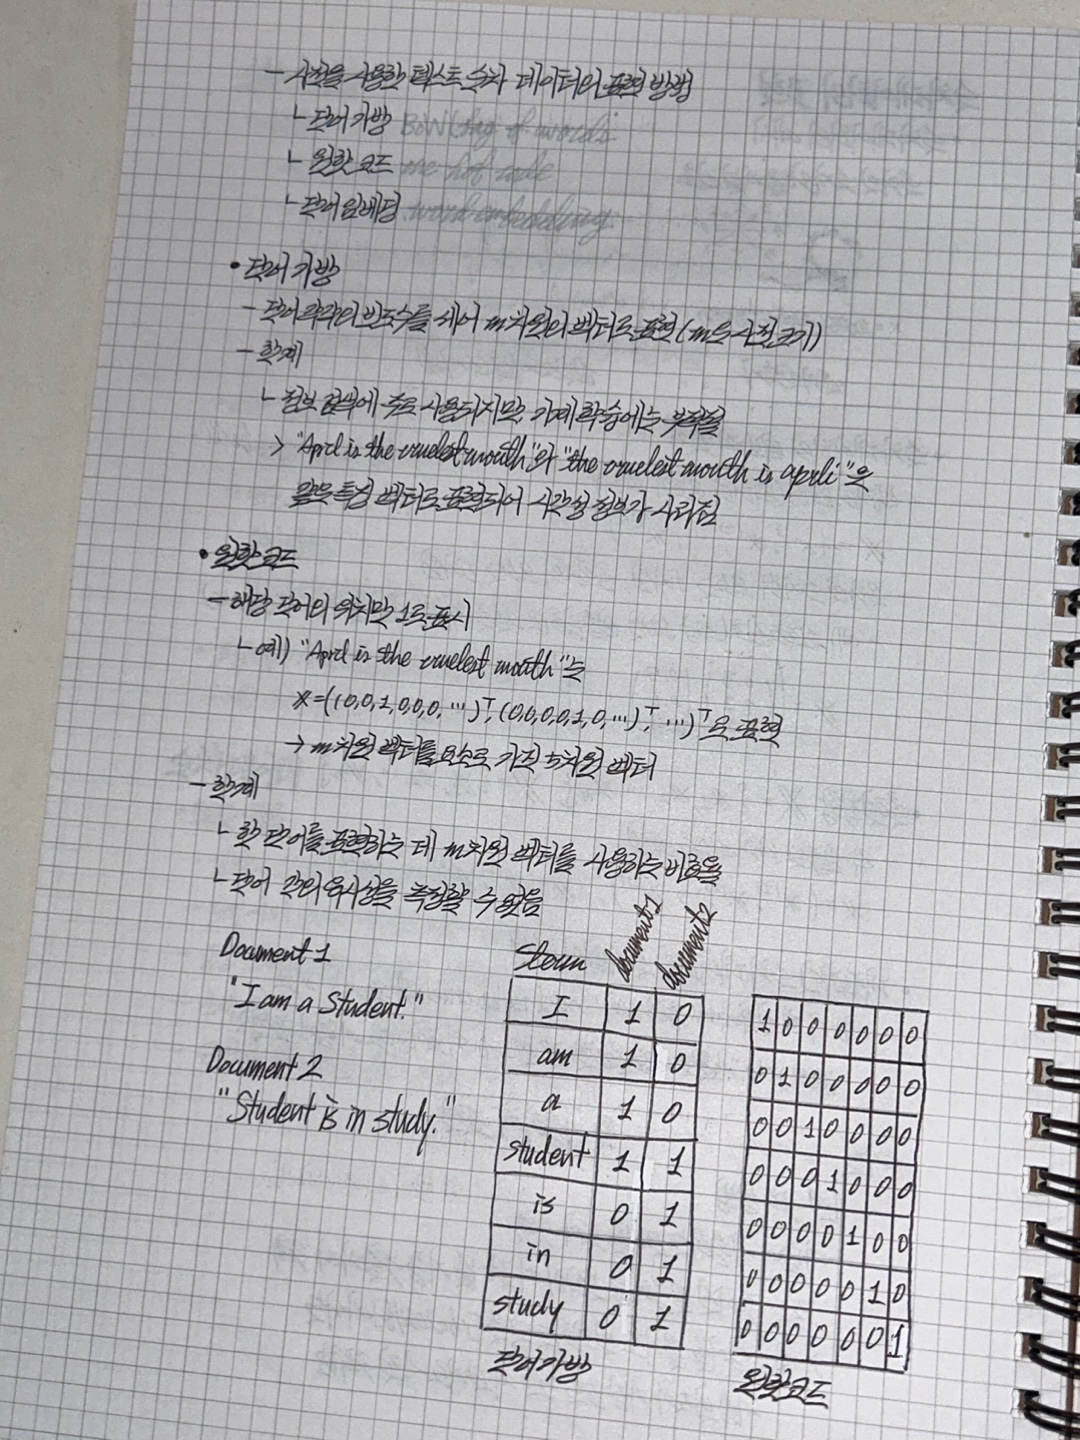 - 사전을 사용한 텍스트 순차 데이터의 표현 방법
ㄴ 단어 가방 BoW(bag of words
ㄴ 원핫 코드 one hot code
ㄴ 단어 임베딩 word embedding
• 단어 가방
- 단어 각각의 빈도수를 세어 m차원의 벡터로 표현(m은 사전 크기)
- 한계
ㄴ 정보 검색에 주로 사용되지만, 기계 학습에는 부적절
> "April is the cruelest month"와 "the cruelest month is april"은
같은 특징 벡터로 표현되어 시간성 정보가 사라짐
• 원핫 코드
- 해당 단어의 위치만 1로 표시
ㄴ 예) "April is the cruelest month"는
x=((0,0,1,0,0,0,…)ᵀ, (0,0,0,0,1,0,…)ᵀ, …)ᵀ로 표현
→ m차원 벡터를 요소로 가진 5차원 벡터
- 한계
ㄴ 한 단어를 표현하는 데 m차원 벡터를 사용하는 비효율
ㄴ 단어 간의 유사성을 측정할 수 없음
Document 1
"I am a Student."
Document 2
"Student is in study."
document1 document2
I 1 0
am 1 0
a 1 0
student 1 1
is 0 1
in 0 1
study 0 1
단어가방
1 0 0 0 0 0 0
0 1 0 0 0 0 0
0 0 1 0 0 0 0
0 0 0 1 0 0 0
0 0 0 0 1 0 0
0 0 0 0 0 1 0
0 0 0 0 0 0 1
원핫코드